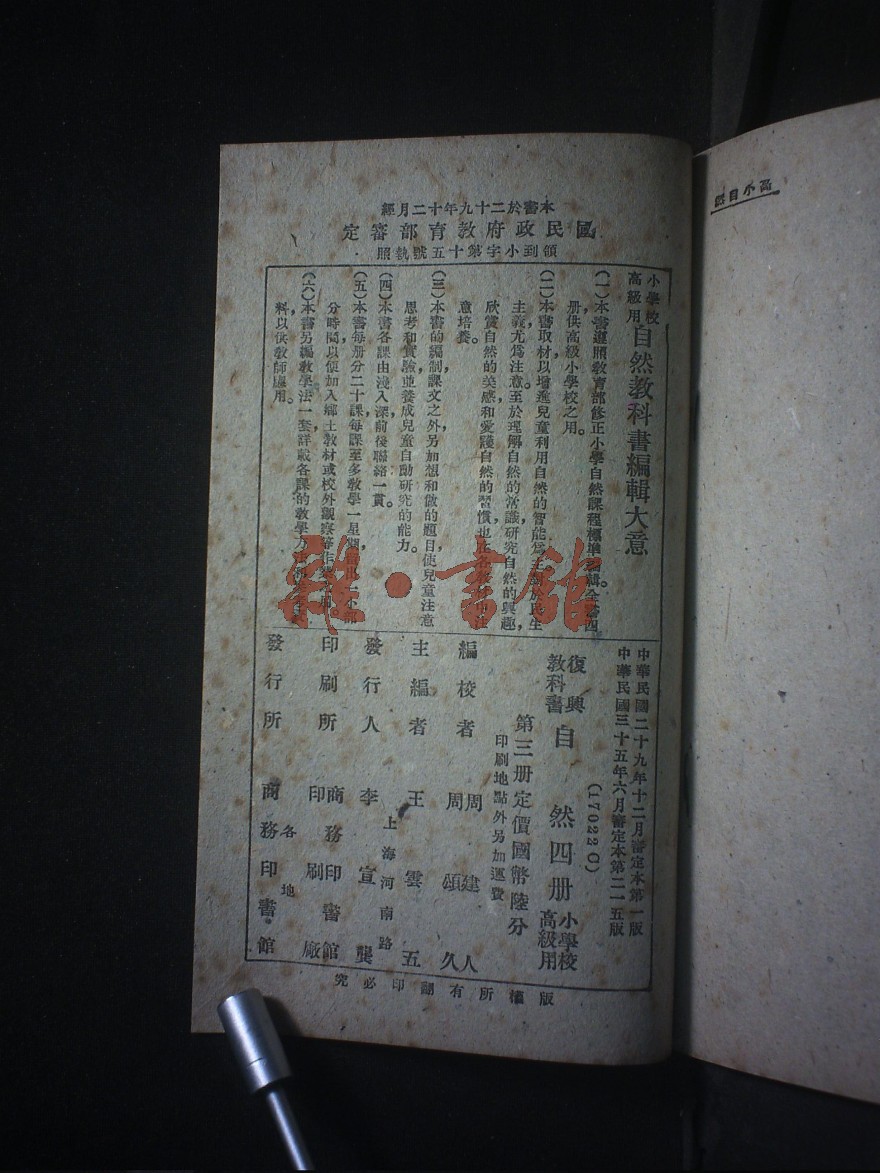 本書於二十九年十二月經
國民政府教育部審定
領到小字第十五號執照
小學校高級用
自然教科書編輯大意
(一)本書遵照教育部修正小學自然課程標準編輯全書四
册,供高級小學校之用。
(二)本書取材以增進兒童利用自然的智能爲主,對於民生
主義尤爲注意。至於理解自然的常識,研究自然的興趣,
欣賞自然的美感和愛護自然的習慣,也在各教材中注
意培養。
(三)本書的編制,課文之外,另加想和做的題目,使兒童注意
思考和實驗,並養成兒童自動研究的能力。
(四)本書各課由淺入深,前後聯絡一貫。
(五)本書每册分二十課,每課至多教學一星期
分時間,以便加入鄉土教材或校外觀察等作業
(六)本書另編教學法一套,詳載各課的教學方法
料,以供教師應用。
中華民國二十九年十二月審定本第一版
中華民國三十五年六月審定本第二一五版
(17022G)
復興教科書
自然四册
小學校高級用
第三册定價國幣陸分
印刷地點外另加運費
編校者 周建人
周頌久
主編者 王雲五
上海河南路
發行人 李宣龔
印刷所 商務印書館
印刷廠
各地
發行所 商務印書館
版權所有翻印必究
高小自然
雜·書館